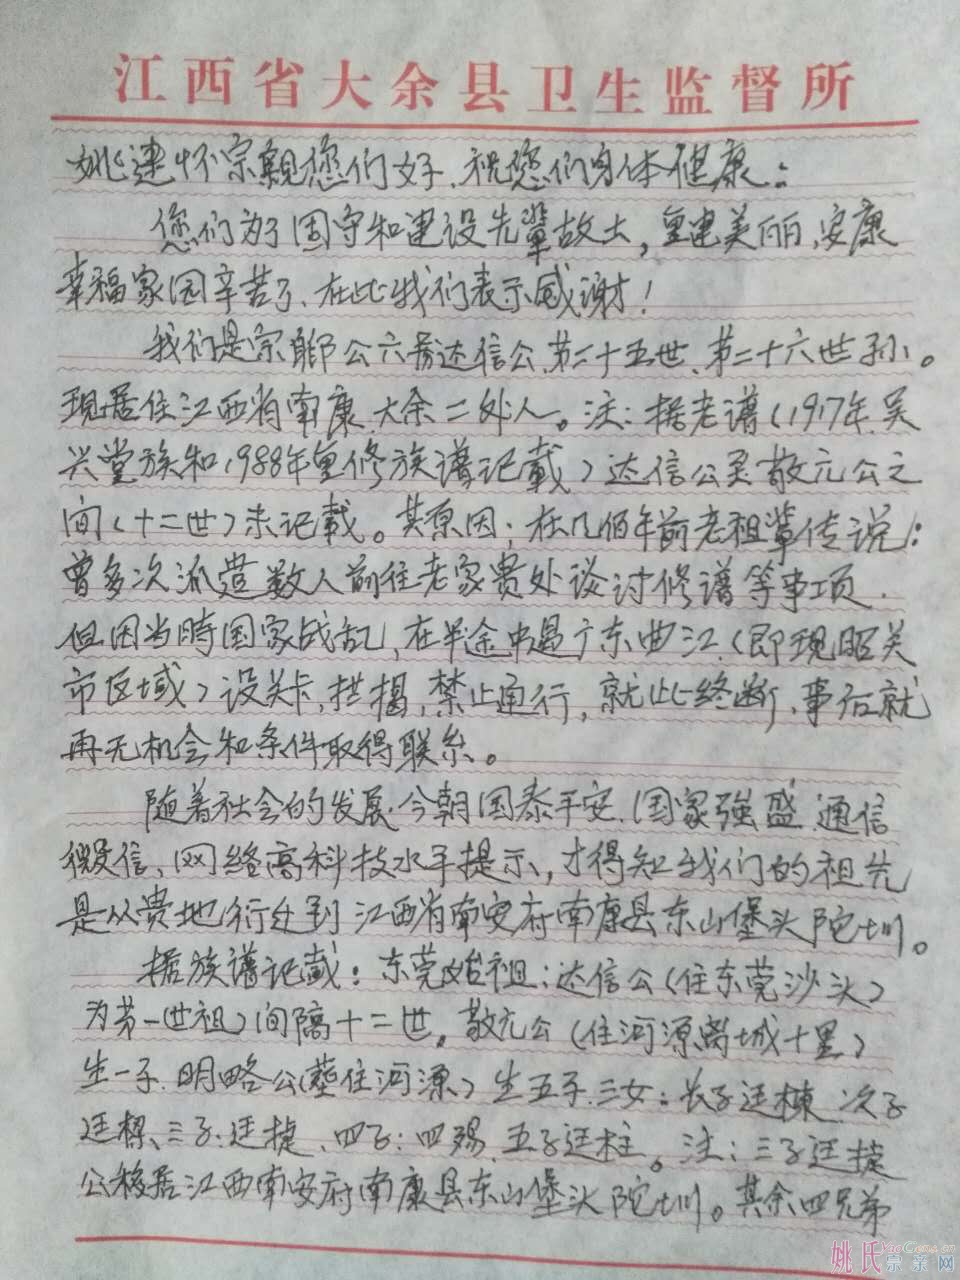 江西省大余县卫生监督所
姚建怀宗親您们好.祝您们身体健康:
您们为了固守和建设先輩故土,重建美丽,安康
幸福家园辛苦了.在此我们表示感謝!
我们是宗聊公六房达信公.第二十五世.第二十六世孙。
现居住江西省南康.大余二处人。注:据老谱(1917年.吴
兴堂族和1988年重修族谱记載)达信公至敬元公之
间(十二世)未记載。其原因;在几佰年前老祖輩传说:
曾多次派遣数人前往老家贵处谈讨修谱等事项.
但因当時国家战乱,在半途中遇广东曲江.(即现昭关
市区域)设关卡,拦揭,禁止通行,就此终断.事后就
再无机会和条件取得联糸。
随着社会的发展.今朝国泰平安.国家强盛.通信
微信、网络高科技水平提示、才得知我们的祖先
是从贵地衍迁到江西省南安府南康县东山堡头陀圳。
据族谱记載:东莞始祖:达信公(住东莞沙头)
为第一世祖)间隔十二世。敬元公(住河源离城十里)
生一子.明略公(葬住河源)生五子.三女:长子廷棟.次子
三子:廷捷.四子:四赐.五子廷柱。注:三子廷捷
公移居江西南安府南康县东山堡头陀圳。其余四兄弟
姚氏宗亲网
YaoGens.cn